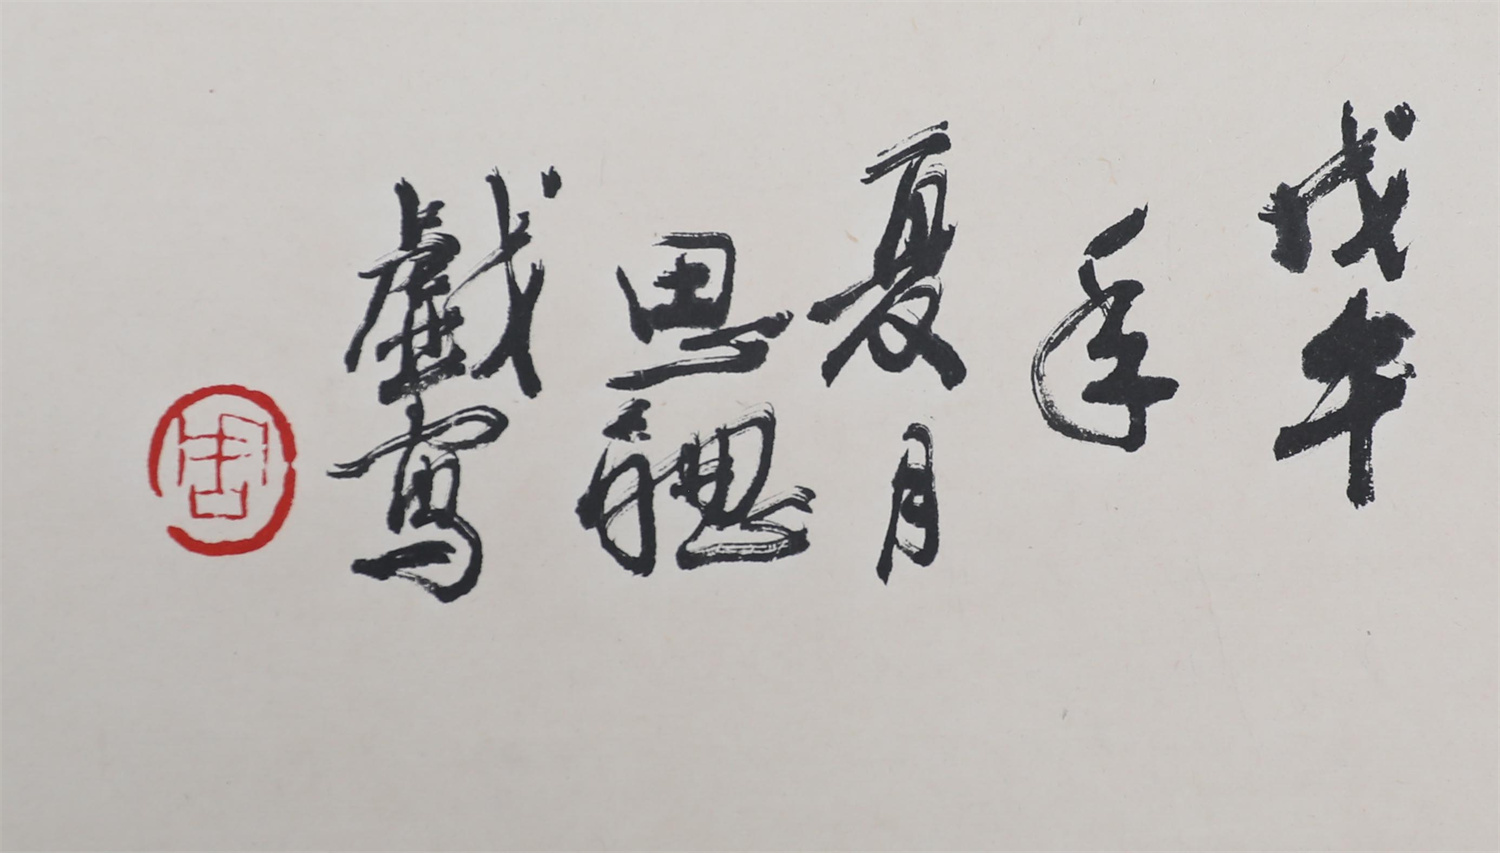 戊午
年
夏月
思聰
戲寫
周